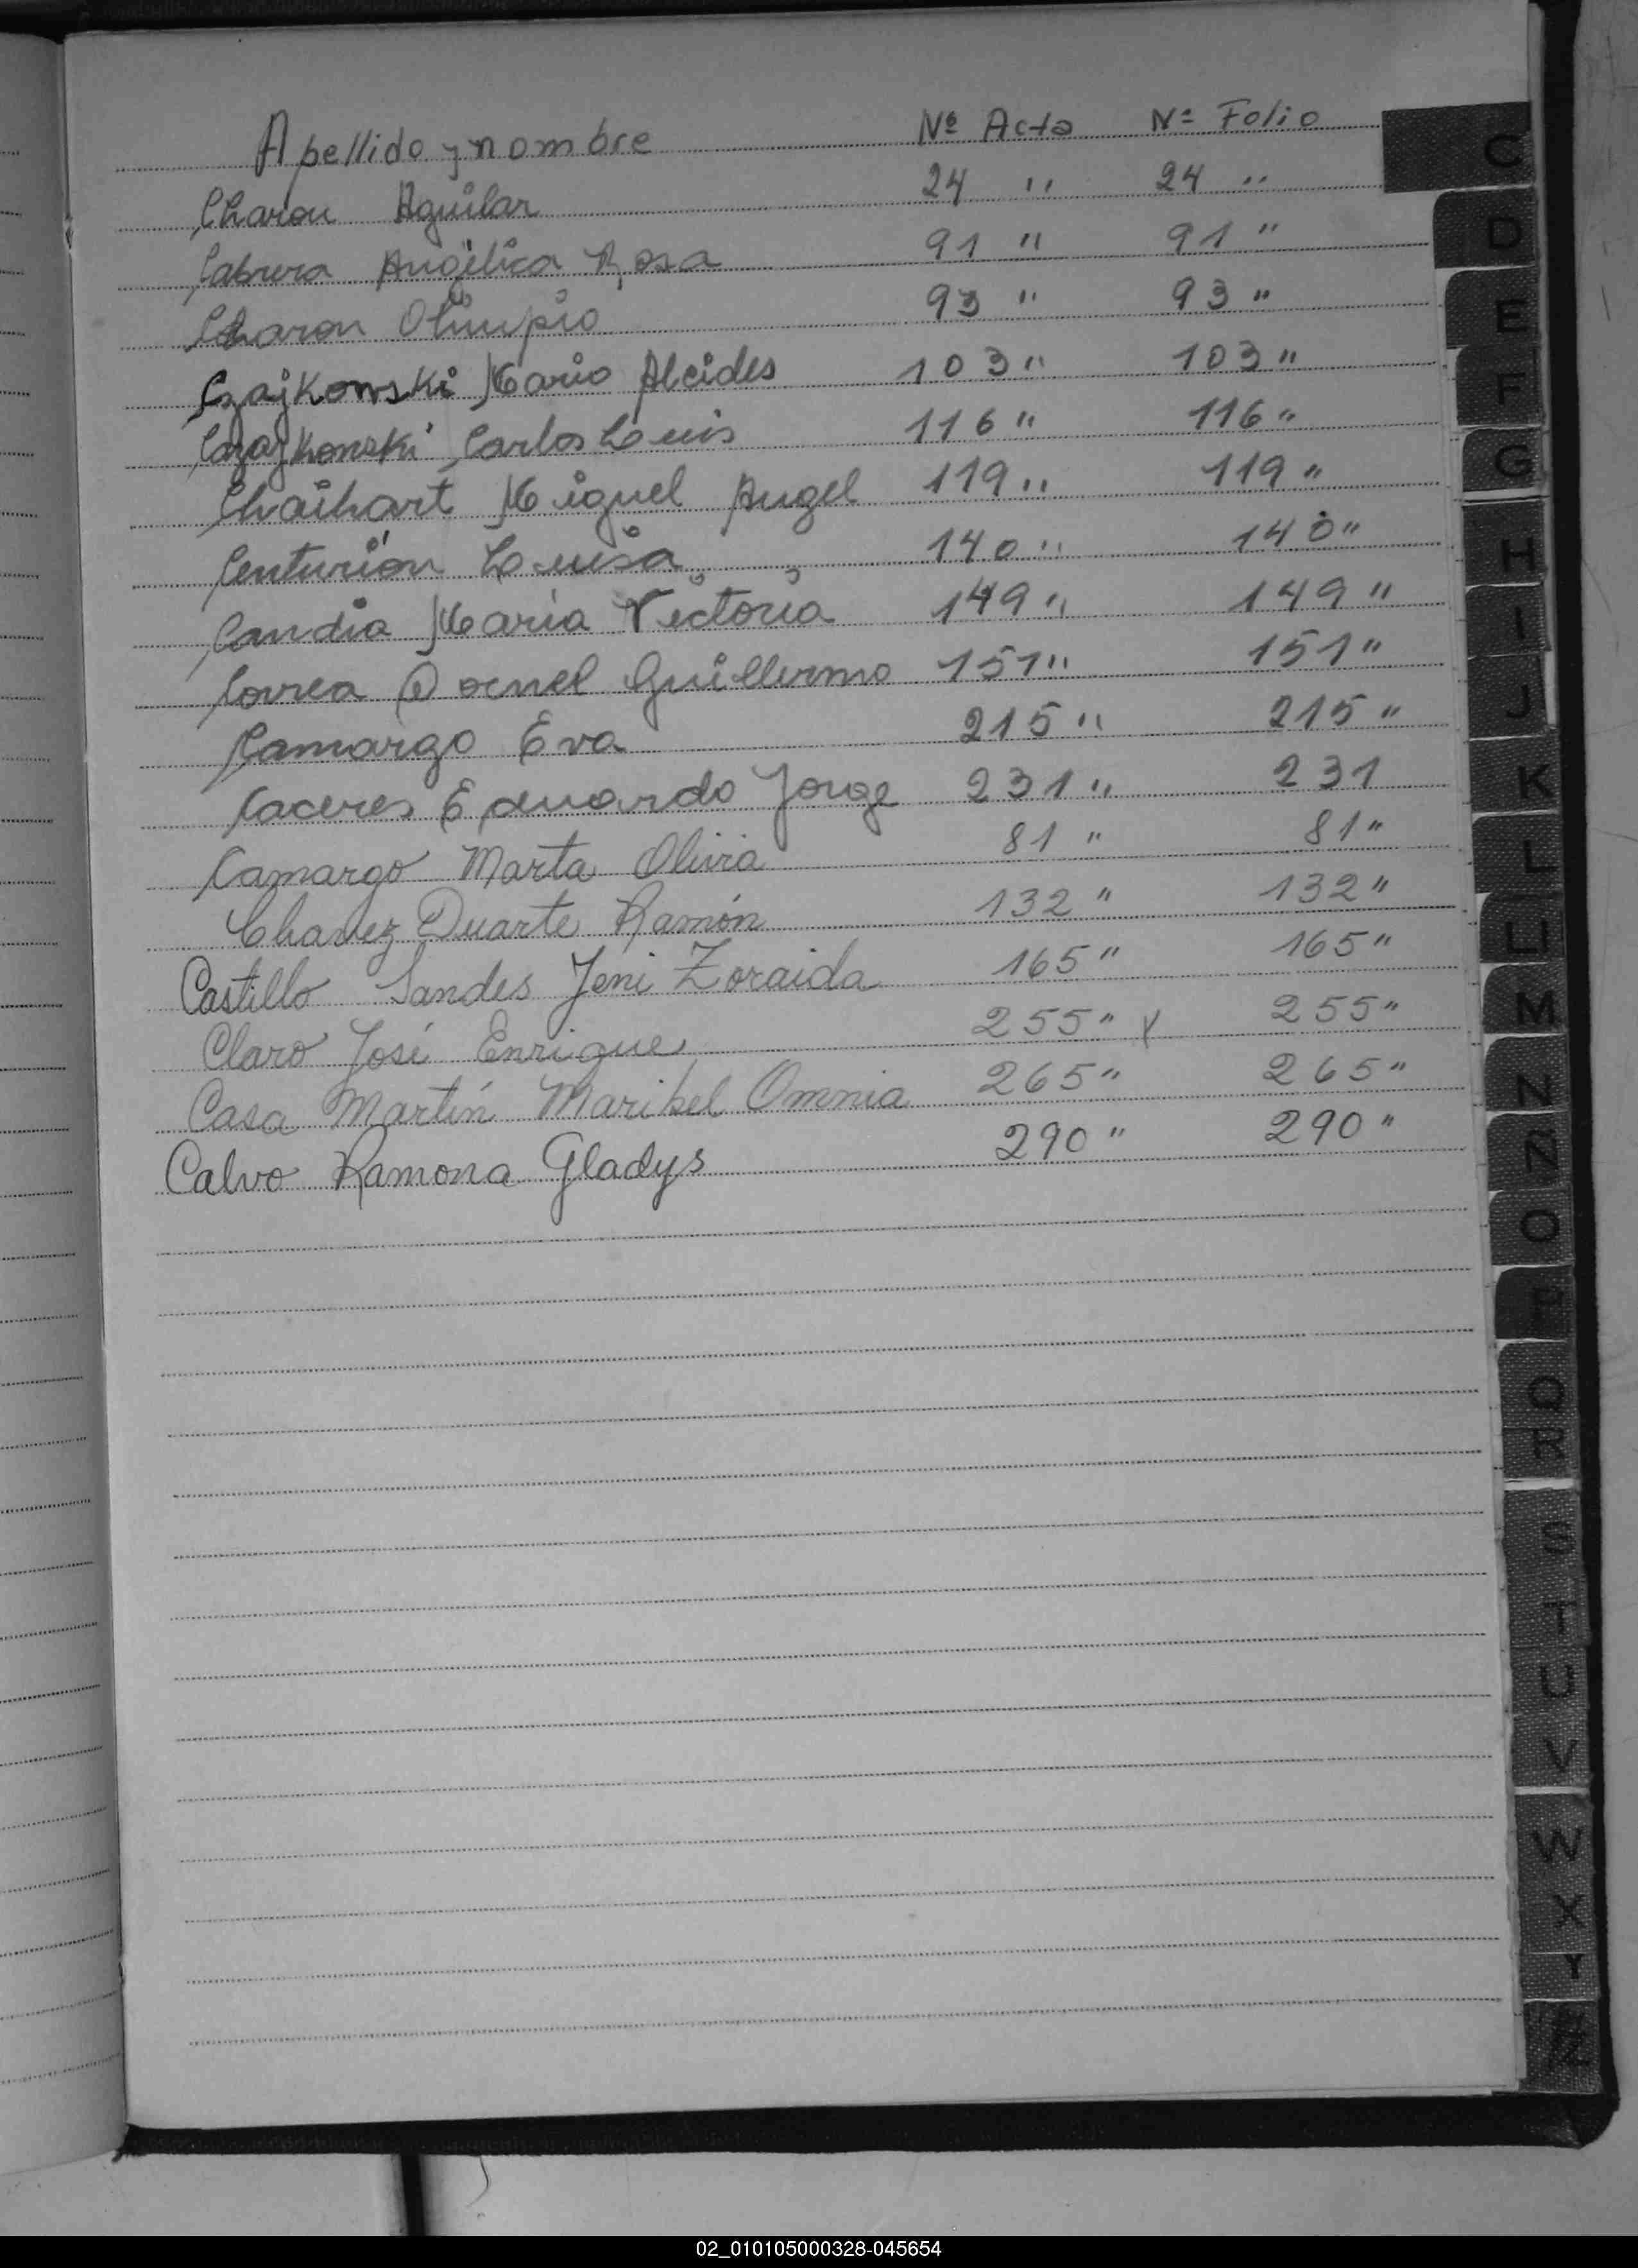 Apellido y nombre Nº Acta Nº Folio
Charou Aguilar 24 " 24 "
Cabrera Angélica Rosa 91 " 91 "
Charon Olimpio 93 " 93 "
Czajkowski Mario Alcides 103 " 103 "
Czajkonski Carlos Luis 116 " 116 "
Chaihart Miguel Angel 119 " 119 "
Centurión Luisa 140 " 140 "
Candia María Victoria 149 " 149 "
Correa Guillermo 151 " 151 "
Camargo Eva 215 " 215 "
Caceres Eduardo Jorge 231 " 231
Camargo Marta Olivia 81 " 81 "
Chavez Duarte Ramón 132 " 132 "
Castillo Sandes Jeni Zoraida 165 " 165 "
Claro José Enrique 255 " x 255 "
Casa Martín Maribel Omnia 265 " 265 "
Calvo Ramona Gladys 290 " 290 "
C
D
E
F
G
H
I
J
K
L
LL
M
N
Ñ
O
P
Q
R
S
T
U
V
W
X
Y
Z
02_010105000328-045654